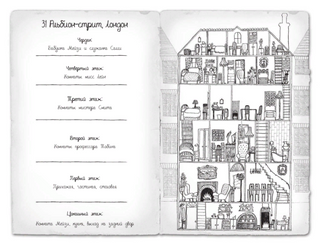 31 Рывбион-стрит, Лондон
Чердак:
Живут Мейзи и служанка Салли
Четвертый этаж:
Комнаты мисс Лайл
Третий этаж:
Комнаты мистера Смита
Второй этаж:
Комнаты профессора Тобина
Первый этаж:
Прихожая, гостиная, столовая
Цокольный этаж:
Комната Мейзи, кухня, выход на задний двор